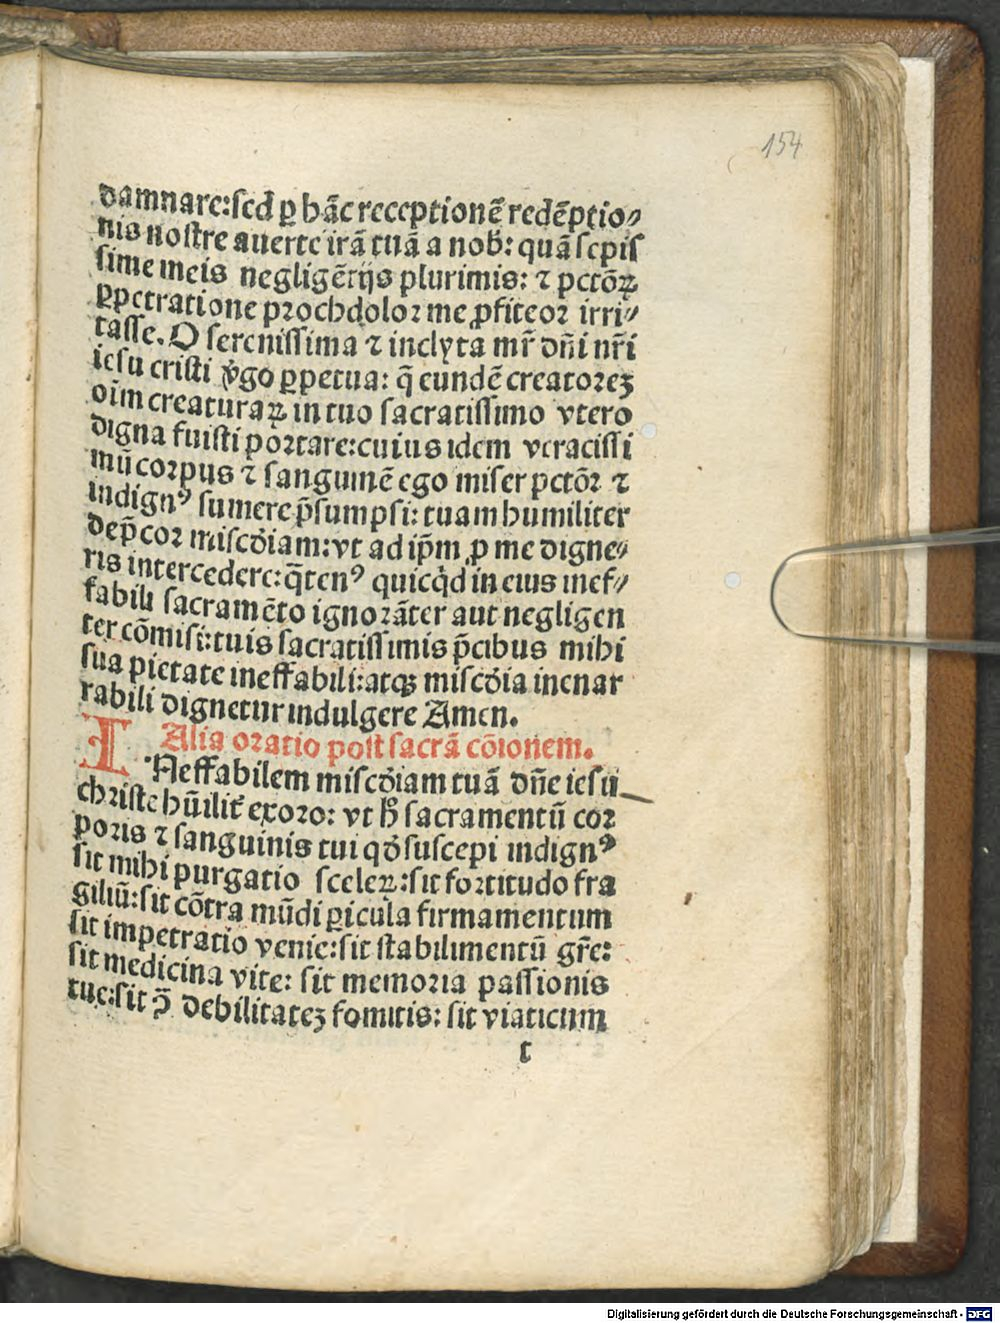 154
damnare:sed ꝑ hãc receptionẽ redẽptio⸗
nis nostre auerte irã tuã a nob̃: quã sepis
sime meis negligẽtijs plurimis: ⁊ pctõꝝ
ꝑpetratione prochdolor me ꝓfiteor irri⸗
tasse. O serenissima ⁊ inclyta mr̃ dñi nr̃i
iesu cristi v̾go ꝑpetua: q̃ eundẽ creatorez
oĩm creaturaꝝ in tuo sacratissimo vtero
digna fuisti portare:cuius idem veracissi
mũ corpus ⁊ sanguinẽ ego miser pctõr ⁊
indignꝰ sumere p̃sumpsi: tuam humiliter
dep̃cor misc̾diam:vt ad ip̃m ꝓ me digne⸗
ris intercedere:q̃tenꝰ quicq̇d in eius inef⸗
fabili sacramẽto ignorãter aut negligen
ter cõmisi:tuis sacratissimis p̃cibus mihi
sua pietate ineffabili:atqꝫ misc̾dia inenar
rabili dignetur indulgere Amen.
Alia oratio post sacrã cõionem.
INeffabilem misc̾diam tuã dñe iesu
christe hũilit̾ exoro: vt h̾ sacramentũ cor
poris ⁊ sanguinis tui qd̾ suscepi indignꝰ
sit mihi purgatio sceleꝝ:sit fortitudo fra
giliũ:sit cõtra mũdi ꝑicula firmamentum
sit impetratio venie:sit stabilimentũ gr̃e:
sit medicina vite: sit memoria passionis
tue:sit ꝯ̃ debilitatez fomitis: sit viaticum
t
Digitalisierung gefördert durch die Deutsche Forschungsgemeinschaft - DFG